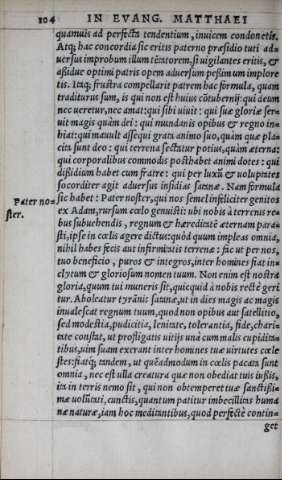 104 IN EVANG. MATTHAEI
quamuis ad perfectã tendentium, inuicem condonetis.
Atq; hac concordia sic eritis paterno præsidio tuti ad-
uersus improbum illum tẽtatorem, si vigilantes eritis, &
aßiduè optimi patris opem aduersum peßimum implore
tis. Itaq; frustra compellarit patrem hac formula, quam
traditurus sum, is qui non est huius cõtubernij: qui deum
nec ueretur, nec amat: qui sibi uiuit: qui suæ gloriæ ser-
uit magis quàm dei: qui mundanis opibus & regno in-
hiat: qui mauult assequi grata animo suo, quàm quæ pla-
cita sunt deo: qui terrena sectatur potius, quàm æterna:
qui corporalibus commodis posthabet animi dotes: qui
dißidium habet cum fratre: qui per luxũ & uoluptates
socorditer agit aduersus insidias satanæ. Nam formula
Pater no-
ster.
sic habet: Pater noster, qui nos semel infeliciter genitos
ex Adam, rursum cœlo genuisti: ubi nobis à terrenis re-
bus subuehendis, regnum & hæreditatẽ æternam para-
sti, ipse in cœlis agere dictus: quòd quum impleas omnia,
nihil habes fecis aut infirmitatis terrenæ: fac ut per nos,
tuo beneficio, puros & integros, inter homines fiat in-
clytum & gloriosum nomen tuum. Non enim est nostra
gloria, quum tui muneris sit, quicquid à nobis rectè geri
tur. Aboleatur tyrãnis satanæ, ut in dies magis ac magis
inualescat regnum tuum, quod non opibus aut satellitio,
sed modestia, pudicitia, lenitate, tolerantia, fide, chari-
tate constat, ut profligatis uitijs unà cum malis cupidita-
tibus, uim suam exerant inter homines tuæ uirtutes cœle
stes: fiatq; tandem, ut quẽadmodum in cœlis pacata sunt
omnia, nec est ulla creatura quæ non obediat tuis iußis,
ita in terris nemo sit, qui non obtemperet tuæ sanctißi-
mæ uolũtati, cunctis, quantum patitur imbecillitas huma
næ naturæ, iam hoc meditantibus, quod perfectè contin-
get